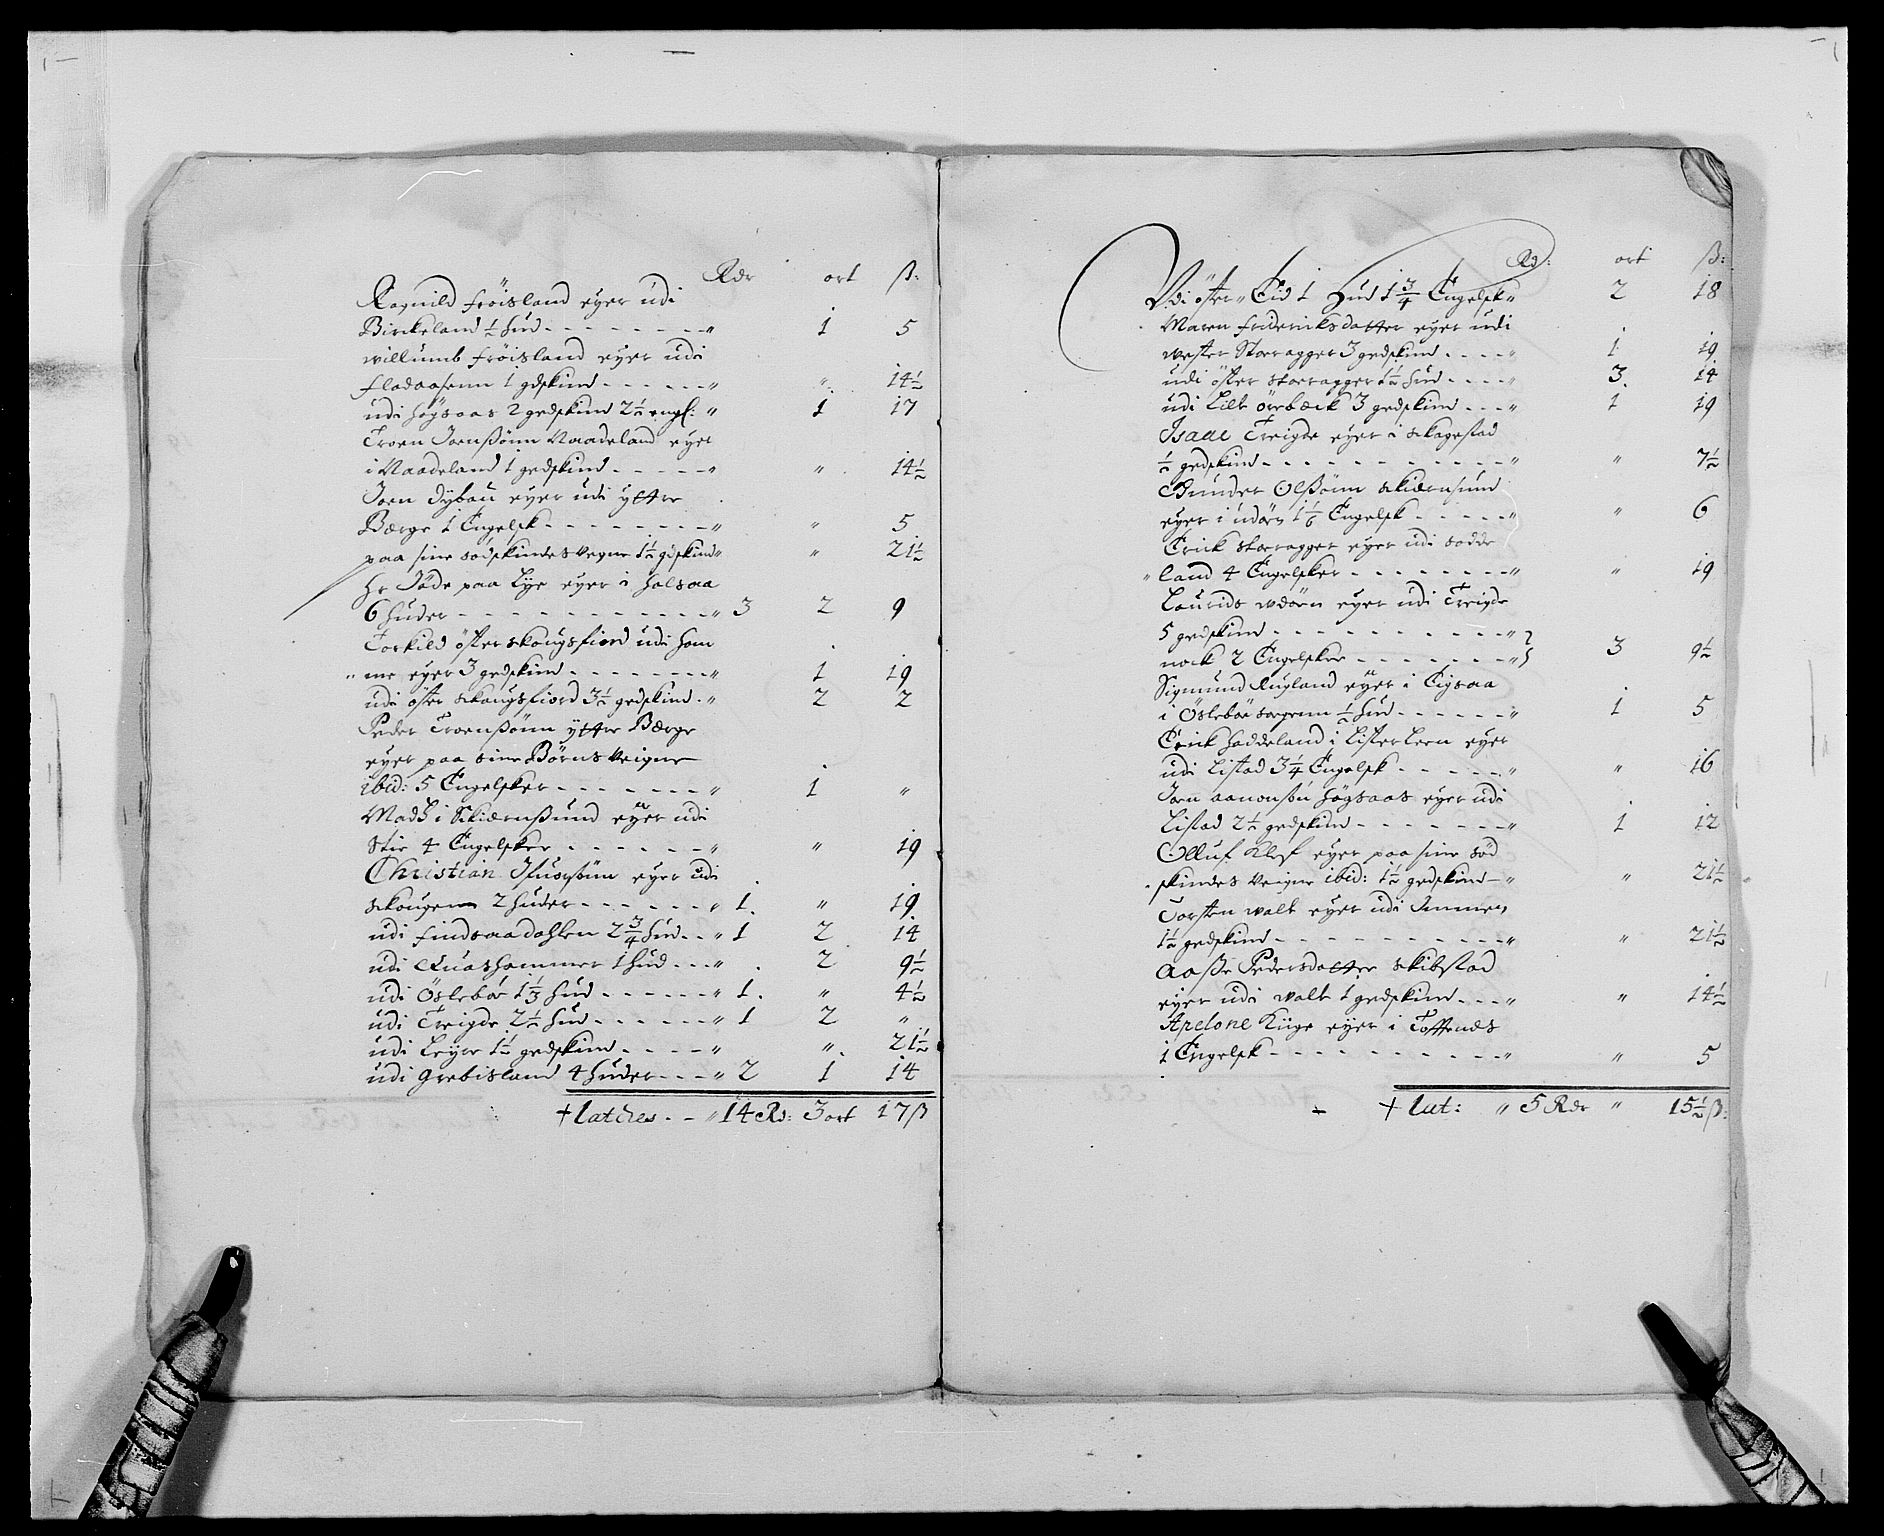 Rdr ort ß:
Ragnild fröisland eyer udi
Birckeland ½ hud - - - - - - - - " 1 5
willumb fröisland eyer udi
fladaasenn 1 gdskind - - - - - - " " 14½
udi högsaas 2 gedskind 2½ engl: " 1 17
Troen Joensönn Vaadeland eyer
i Vaadeland 1 gedskind - - - - - " " 14½
Joen dybau eyer udi yttre
Berge 1 Engelsk - - - - - - - - " " 5
paa sine södskindes vegne 1½ gdskind " " 21½
hr Jöde paa Lye eyer i holsaa
6 huder - - - - - - - - - - - - " 3 2 9
Torkild öster skougsfiord udi hom
" me eyer 3 gedskind - - - - - - - " 1 19
udi öster skougsfiord 3½ gedskind - " 2 2
Peder Troensönn yttre Berge
eyer paa sine Börns veigne
ibid: 5 Engelsker - - - - - - - " 1 "
Madß i Skiærnßund eyer udi
Stie 4 Engelsker - - - - - - " " 19
Christian eyer udi
skougen 2 huder - - - - - - " 1. " 19
udi findsaadahlen 2¾ hud - - " 1 2 14
udi Quashammer 1 hud - - - " 2 9½
udi Öslebör 1⅓ hud - - - - - - " 1. " 4½
udi Treigde 2½ hud - - - - - - " 1 2 "
udi Leyre 1½ gedskind - - - - " " 21½
udi grebisland 4 huder - - - " 2 1 14
+ latches - - " 14 Rd: 3 ort 17 ß
Rd: ort ß:
Udi öster Eid 1 hud 1¾ Engelsk " 2 18
Maren fridericksdatter eyer udi
wester Storagger 3 gedskind - - - - " 1 19
udi öster storagger 1½ hud - - - - " 3. 14
udi Lille örebeck 3 gedskind - - - " 1 19
Isaac Treigde eyer i skagestad
½ gedskind - - - - - - - - - - - " " 7½
Gunder Olßönn skiærnsund
eyer i udörn 1⅙ Engelsk - - - - - " " 6
Erick storagger eyer udi södde
" land 4 Engelsker - - - - - - - " " 19
Laurids udörn eyer udi Treigde
5 gedskind - - - - - - - - - - "
nock 2 Engelsker - - - - - - - " } 3 9½
Sigmund Rugland eyer i Eigsaa
i Öslebör sogenn ½ hud - - - - - - " 1 5
Erick haddeland i Listerleen eyer
udi Listad 3¼ Engelsk - - - - - " " 16
Joen aanonsön högsaas eyer udi
Listad 2½ gedskind - - - - - - - " 1 12
Olluf Klef eyer paa sine söd
skindes veigne ibid: 1½ gedskind - " " 21½
Torsten walle eyer udi Immer,
1½ gedskind - - - - - - - - - - " " 21½
Aaße Pedersdatter skibstad
eyer udi walle 1 gedskind - - - " " 14½
Apelone Kiige eyer i Toftenes
1 Engelsk - - - - - - - - - - " " 5
+ lat: " 5 Rdr " 15½ ß: